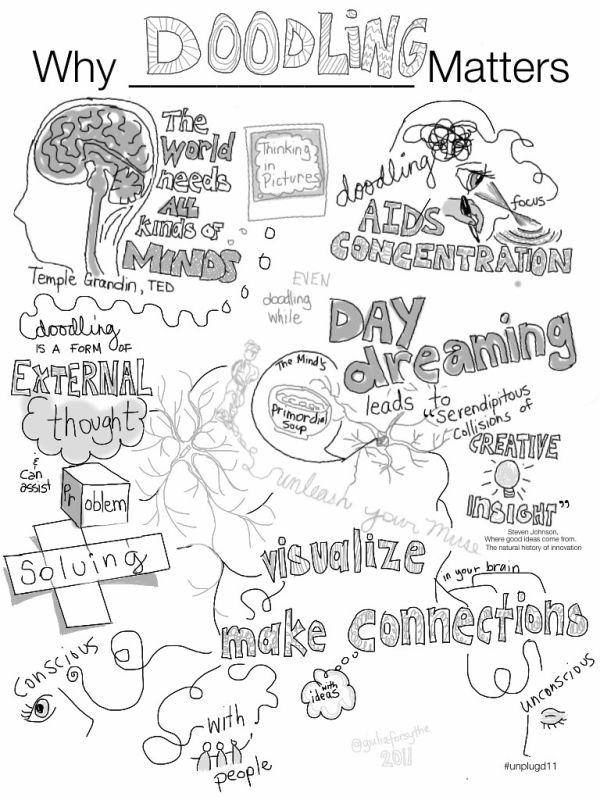 Why DOODLING Matters
The
World
needs
ALL
kinds of
MINDS
Temple Grandin, TED
Thinking
in
Pictures
doodling
focus
AIDS
CONCENTRATION
EVEN
doodling
while
DAY
dreaming
leads to
"serendipitous
collisions of
CREATIVE
INSIGHT"
Steven Johnson,
Where good ideas come from.
The natural history of innovation
doodling
IS A FORM OF
EXTERNAL
thought
& can
assist
Problem
Solving
The Mind's
Primordial
Soup
unleash your muse
visualize
in your brain
make connections
conscious
with
ideas
unconscious
with
people
@giuliaforsythe
2011
#unplugd11